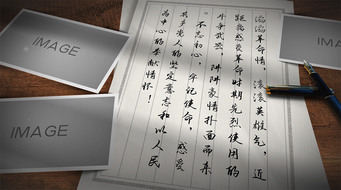 滔滔革命情 滚滚英雄气,近
距离感受革命时期先烈使用的
斗争武器,阵阵豪情扑面而来
。不忘初心,牢记使命,感受
共产党人的坚定意志和以人民
为中心的奉献情怀!
IMAGE
IMAGE
IM